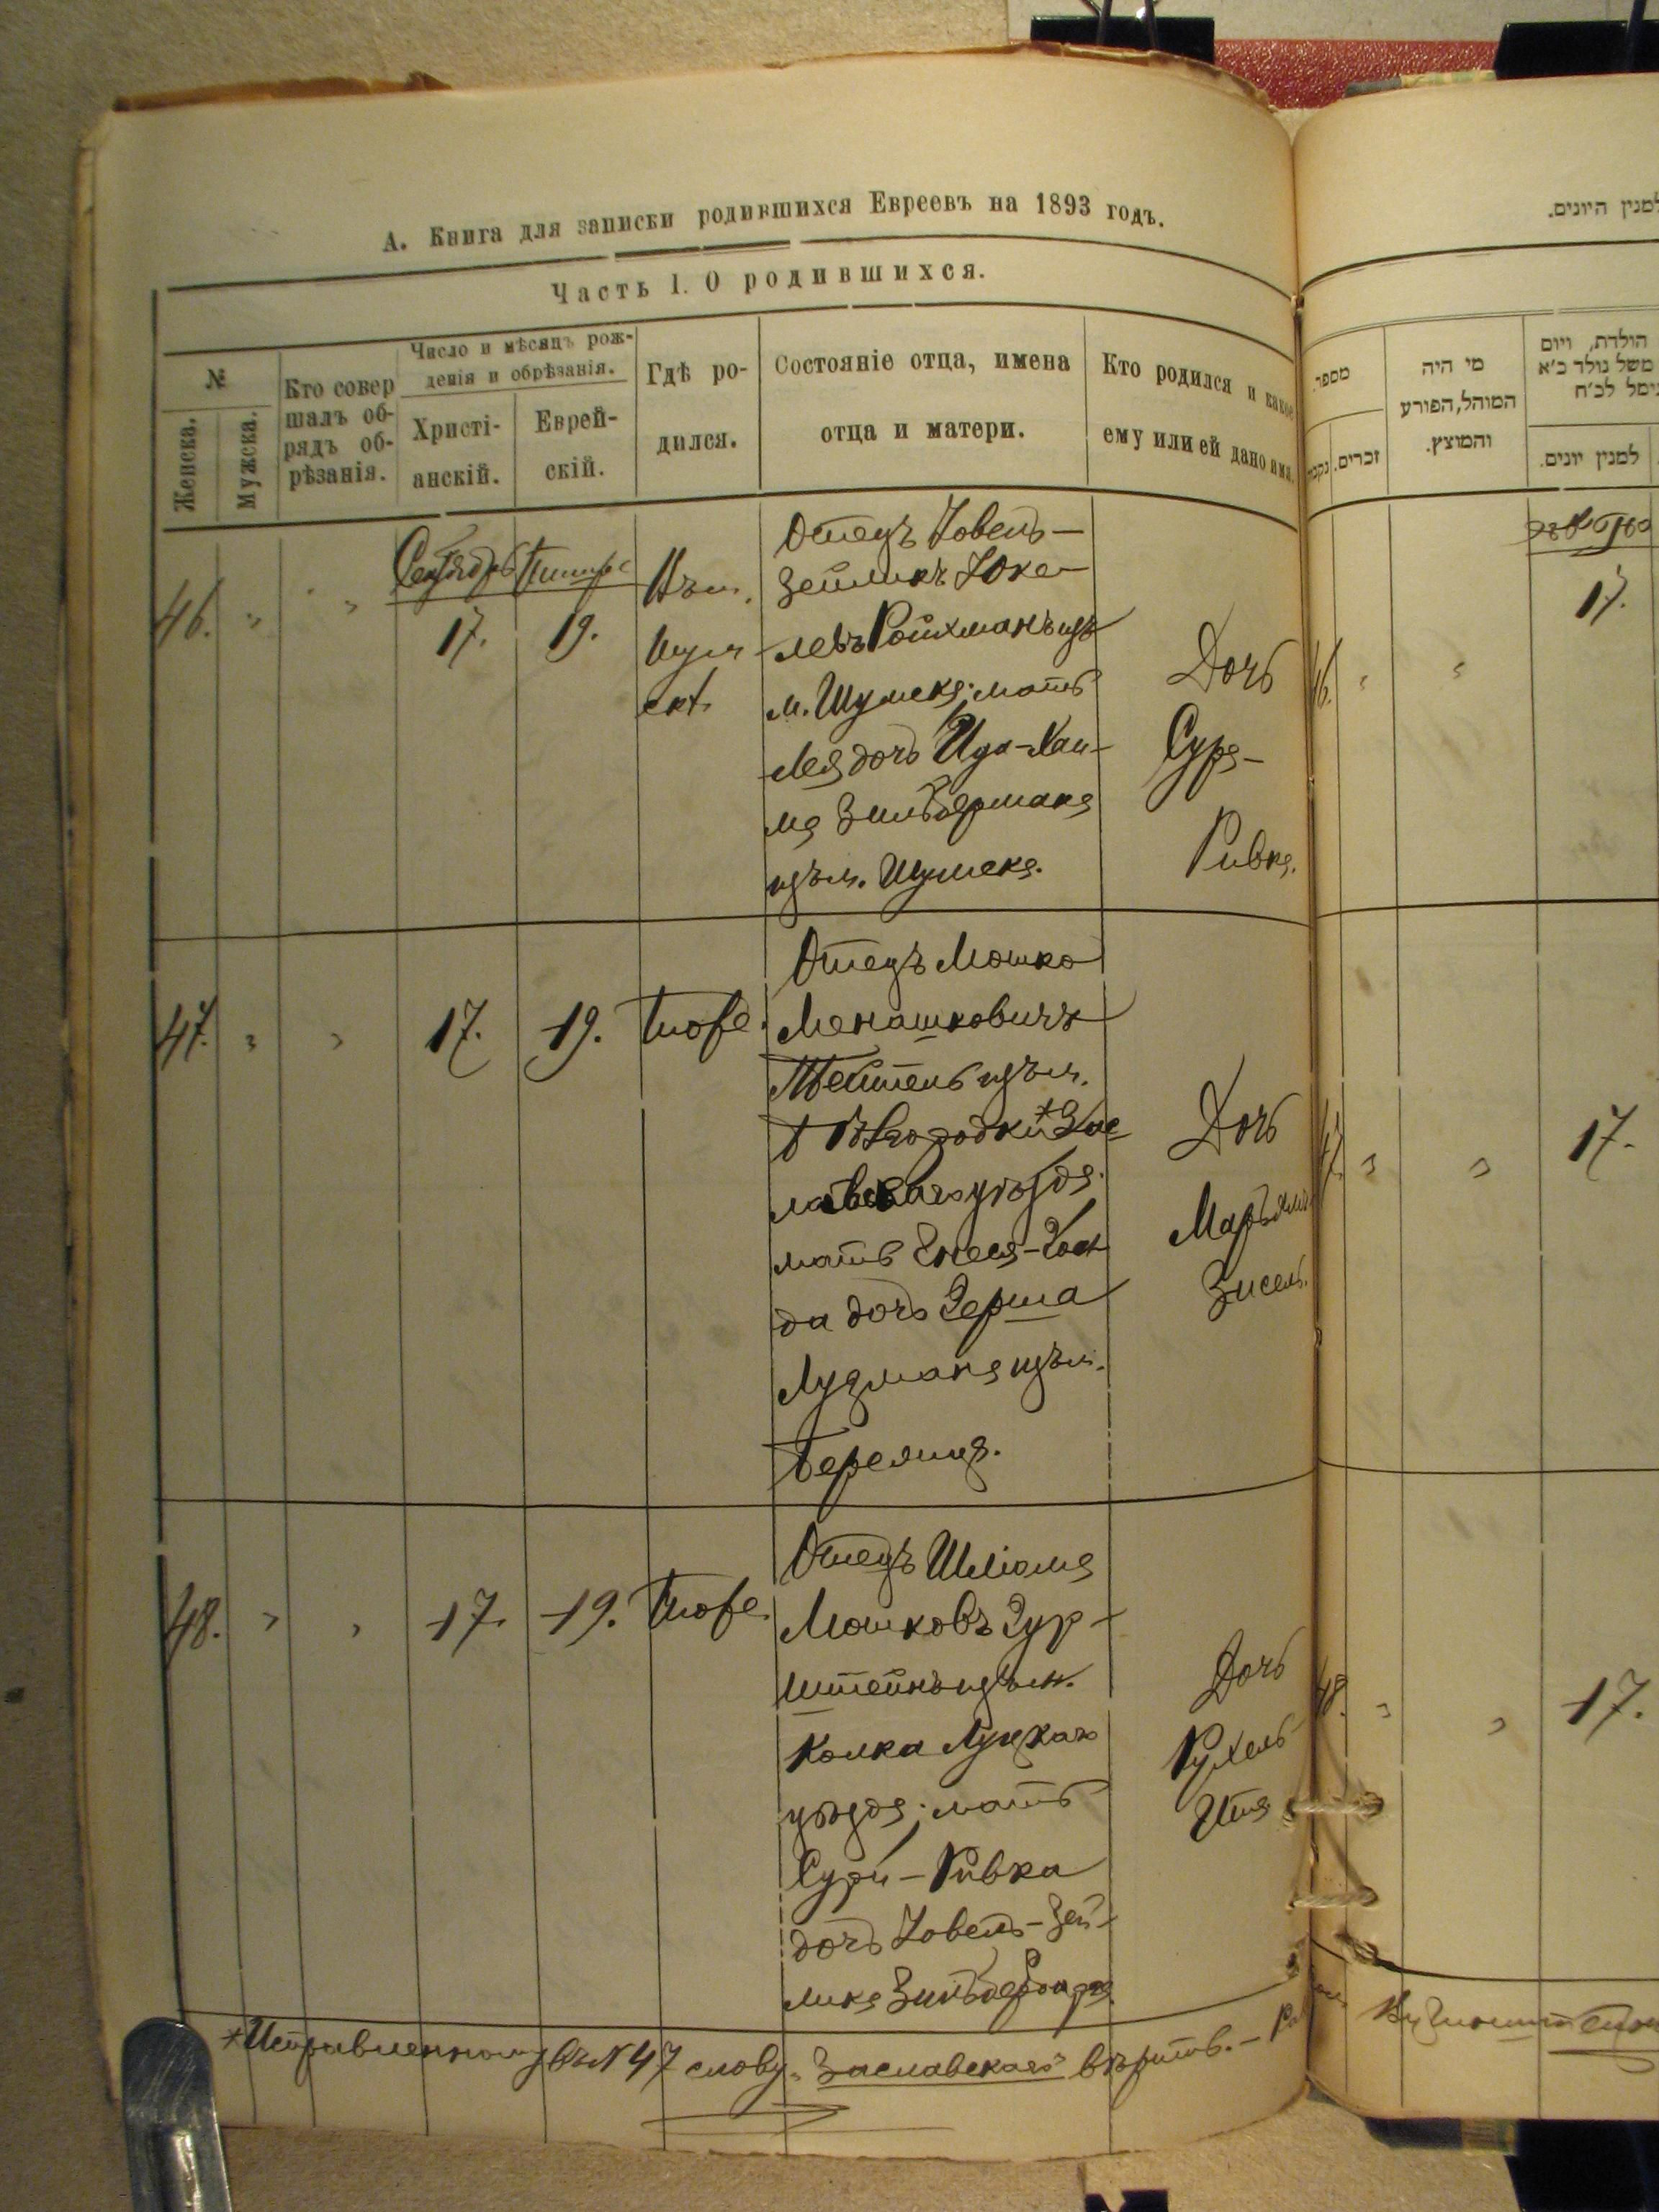 А. Книга для записки родившихся Евреевъ на 1893 годъ.
Часть I. О родившихся.
№
Женска.
Мужска.
Кто совер
шалъ об-
рядъ об-
рѣзанія.
Число и мѣсяцъ рож-
денія и обрѣзанія.
Христі-
анскій.
Еврей-
скій.
Гдѣ ро-
дился.
Состояніе отца, имена
отца и матери.
Кто родился и какое
ему или ей дано имя.
46.
Сентябрь
17.
Тишре
19.
Въ м.
Шумскѣ
Отецъ Іовель-
Зейликъ Юке-
левъ Ройхманъ изъ
м. Шумска; мать
Лея дочь Ица-Хаи-
ма Зильбермана
изъ м. Шумска.
Дочь
Сура-
Ривка.
47.
17.
19.
Тоже.
Отецъ Мошко
Менашковичъ
Тейтель изъ м.
Бѣлгородки *Зас
лавскаго уѣзда;
мать
да дочь Герша
Лузмана изъ м.
Бережца.
Дочь
Марьямъ
Зисель.
48.
17.
19.
Тоже.
Отецъ Шліома
Мошковъ Гур-
штейнъ изъ м.
Колка Луцкаго
уѣзда; мать
Сура-Ривка
дочь Іовель-Зей-
лика
Дочь
Рухель
Итя
*Исправленному въ № 47 слову „Заславскаго" вѣрить.-
למנין היונים.
מספר
זכרים.
מי היה
המוהל, הפורע
והמוצץ.
הולדת, ויום
משל נולד כ״א
נימל לכ״ח
למנין יונים.
17.
46.
47.
17.
48.
17.